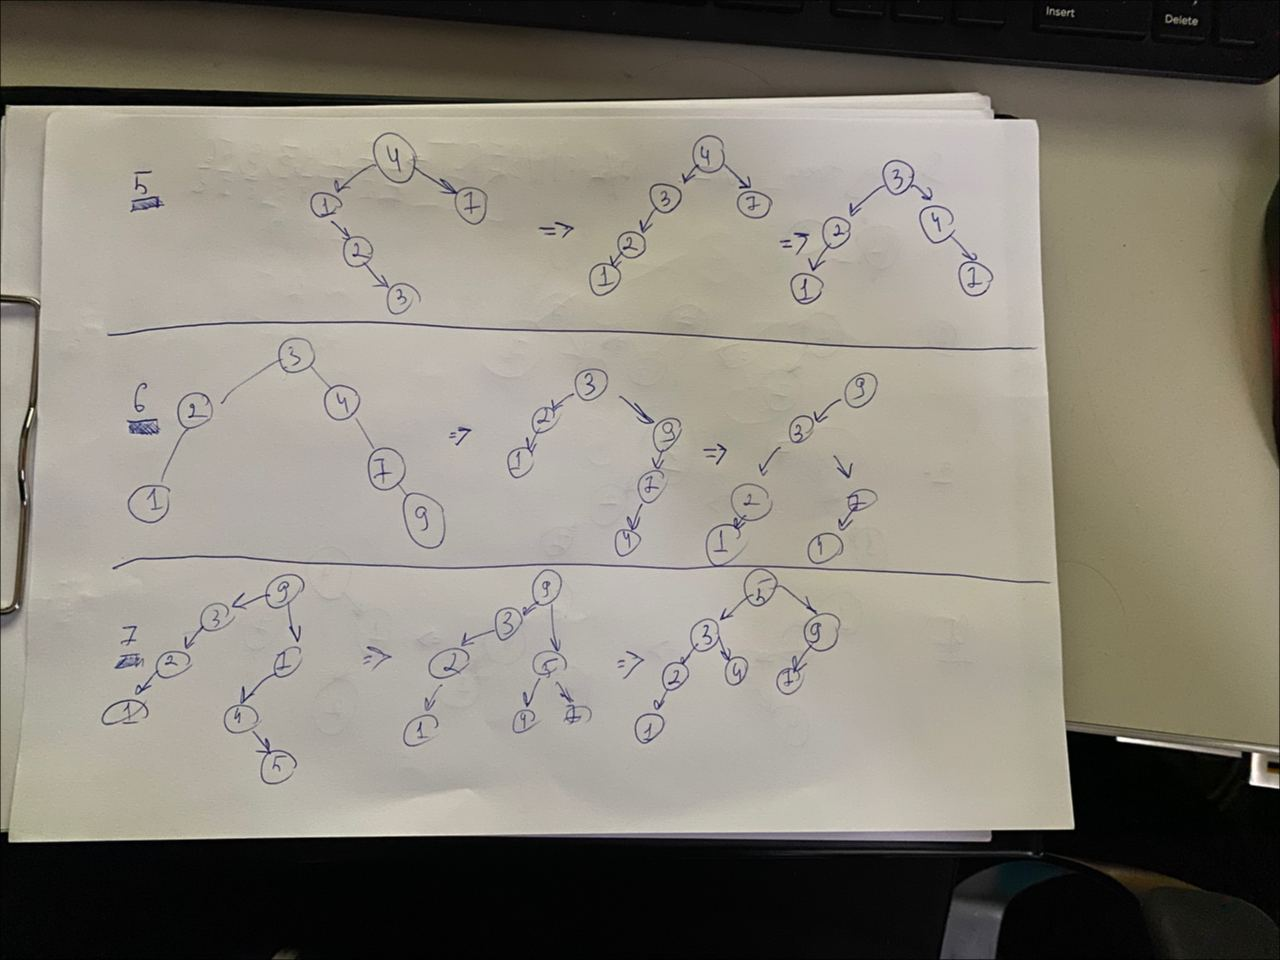 Insert
Delete
5
4
1 7
2
3
=>
4
3 7
2
1
=>
3
2 4
1 7
6
3
2 4
7
1 9
=>
3
2 9
1 7
4
=>
9
3
2 7
1 4
7
9
3
2 7
1 4
5
=>
9
3
2 5
1 4 7
=>
5
3 9
2 4 7
1